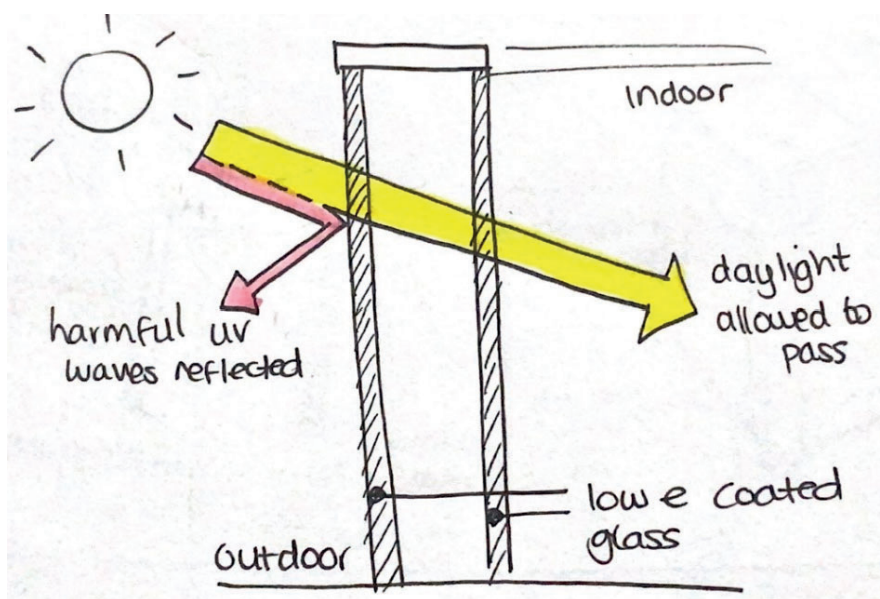 Indoor
daylight
allowed to
pass
harmful uv
waves reflected
low e coated
glass
Outdoor